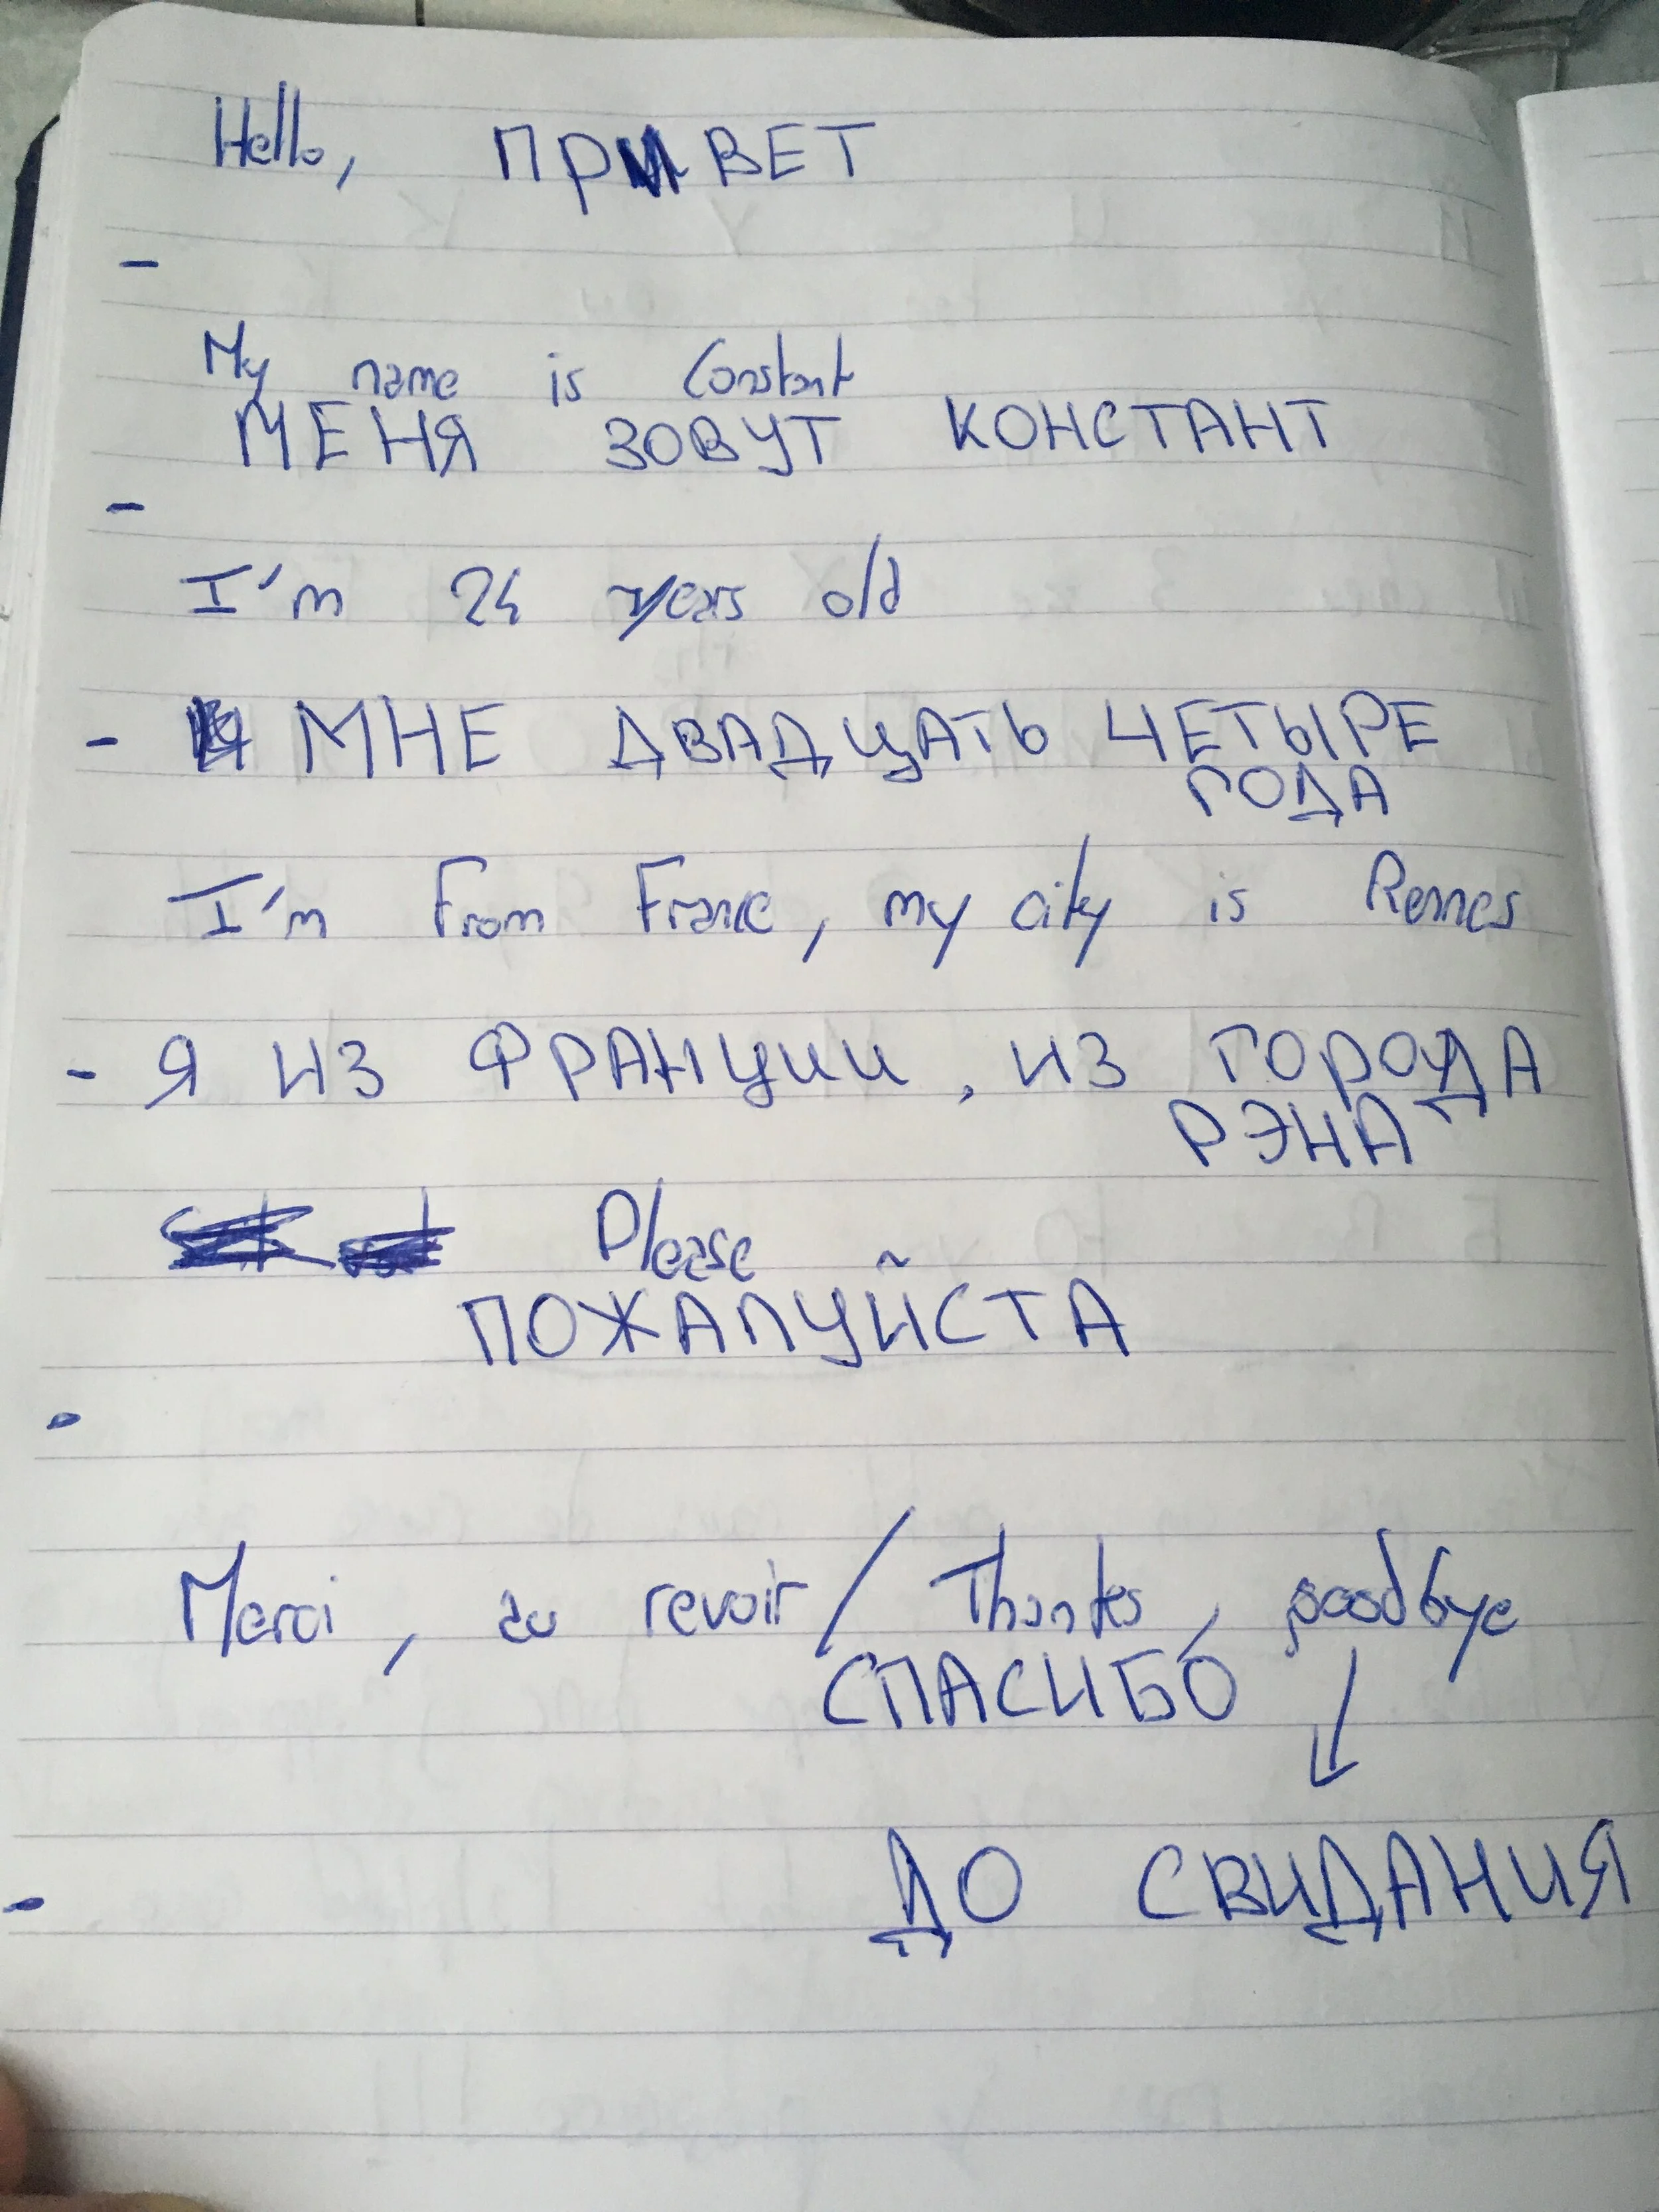 Hello, ПРИВЕТ
My name is Constant
МЕНЯ ЗОВУТ КОНСТАНТ
I'm 24 years old
- МНЕ ДВАДЦАТЬ ЧЕТЫРЕ
ГОДА
I'm From France, my city is Rennes
- Я ИЗ ФРАНЦИИ, ИЗ ГОРОДА
РЭНА
Please
ПОЖАЛУЙСТА
Merci, au revoir / Thanks, goodbye
СПАСИБО
ДО СВИДАНИЯ